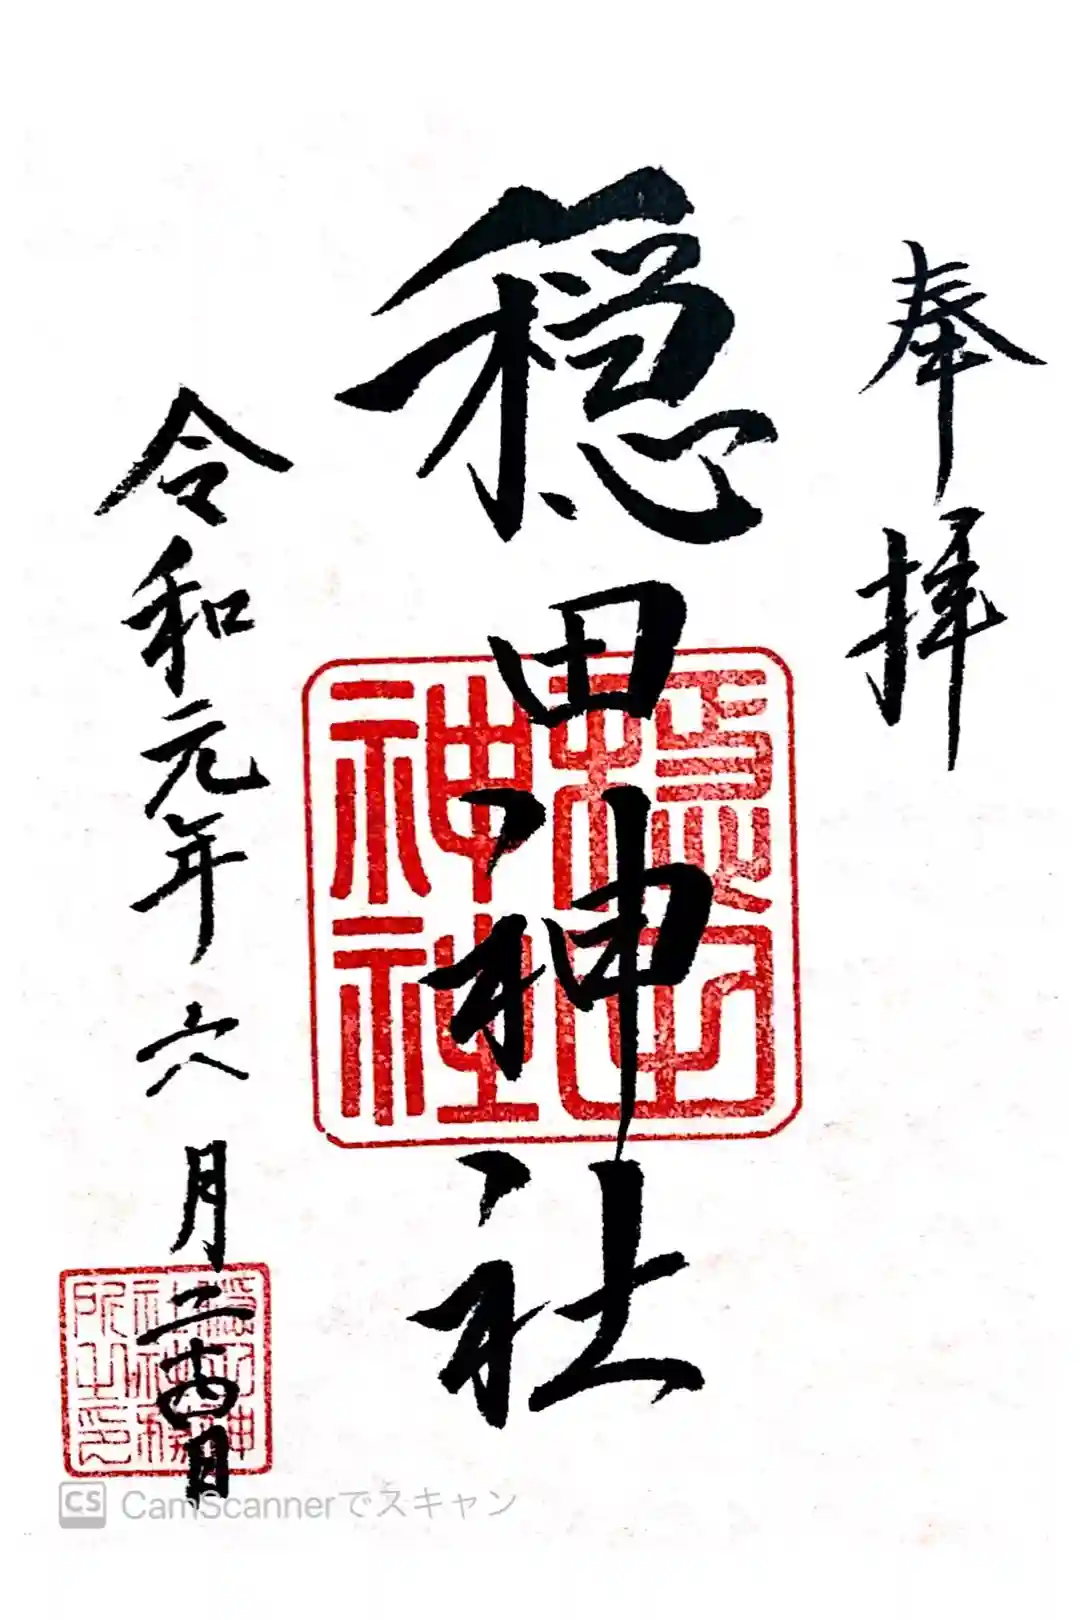 奉拝
穏田神社
令和元年六月二十四日
穏田
神社
穏田神
社社務
所之印
CS CamScannerでスキャン